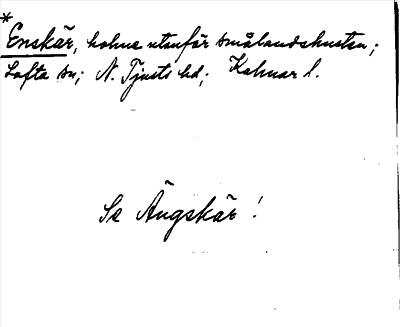 *
Enskär, holme utanför smålandskusten;
Lofta sn; N. Tjusts hd; Kalmar l.
Se Ängskär!